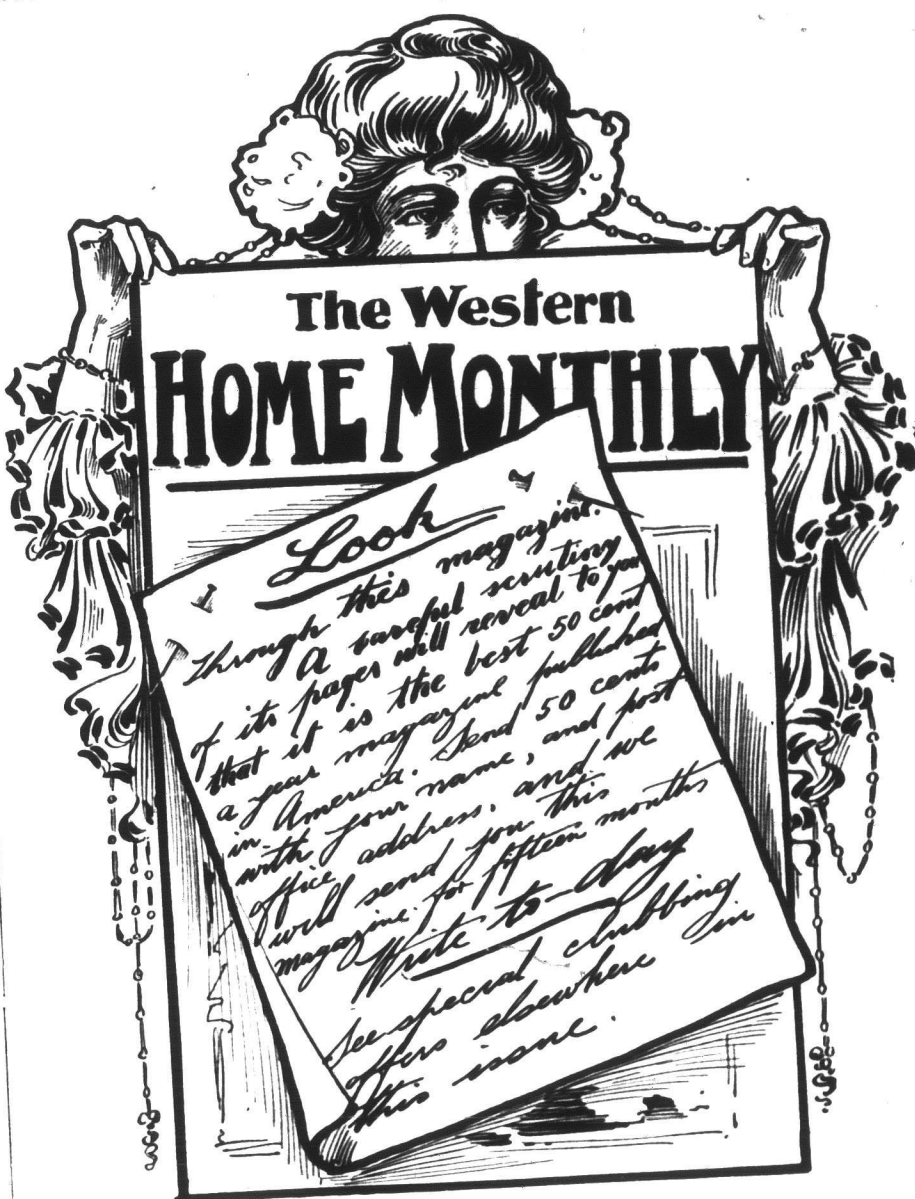 The Western
HOME MONTHLY
Look
through this magazine.
A careful scrutiny
of its pages will reveal to you
that it is the best 50 cent
a year magazine published
in America. Send 50 cents
with your name, and post
office address, and we
will send you this
magazine for fifteen months
Write to-day
See special clubbing
offers elsewhere in
this issue.